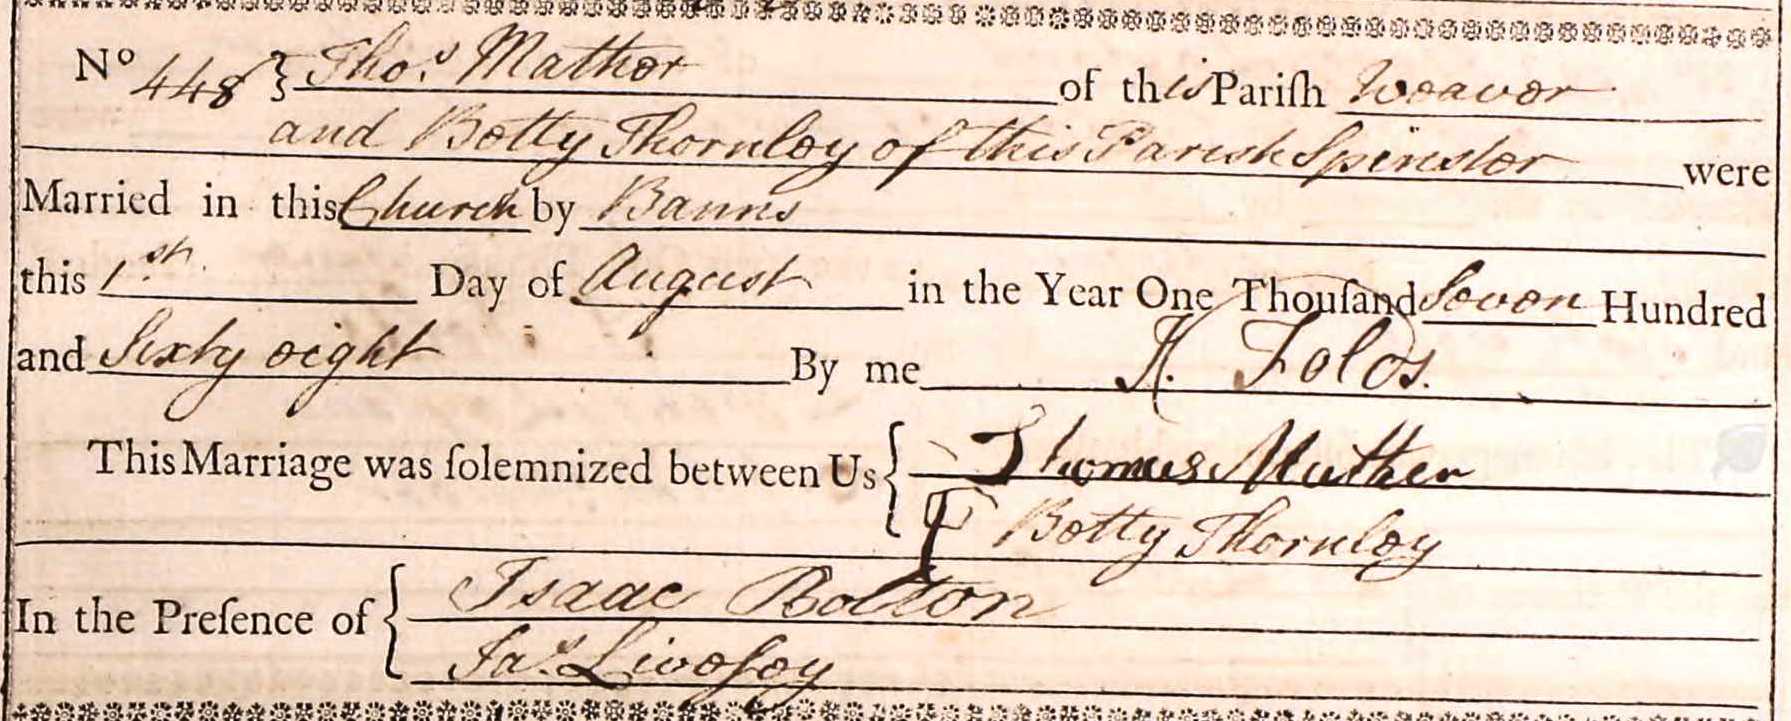 No 448 } Thos. Mather of this Pariſh Weaver
and Betty Thornley of this Parish Spinster were
Married in this Church by Banns
this 1st. Day of August in the Year One Thouſand Seven Hundred
and Sixty eight By me H. Folds.
This Marriage was ſolemnized between Us { Thomas Mather
Betty Thornley
In the Preſence of { Isaac Bolton
Jas. Liveſey